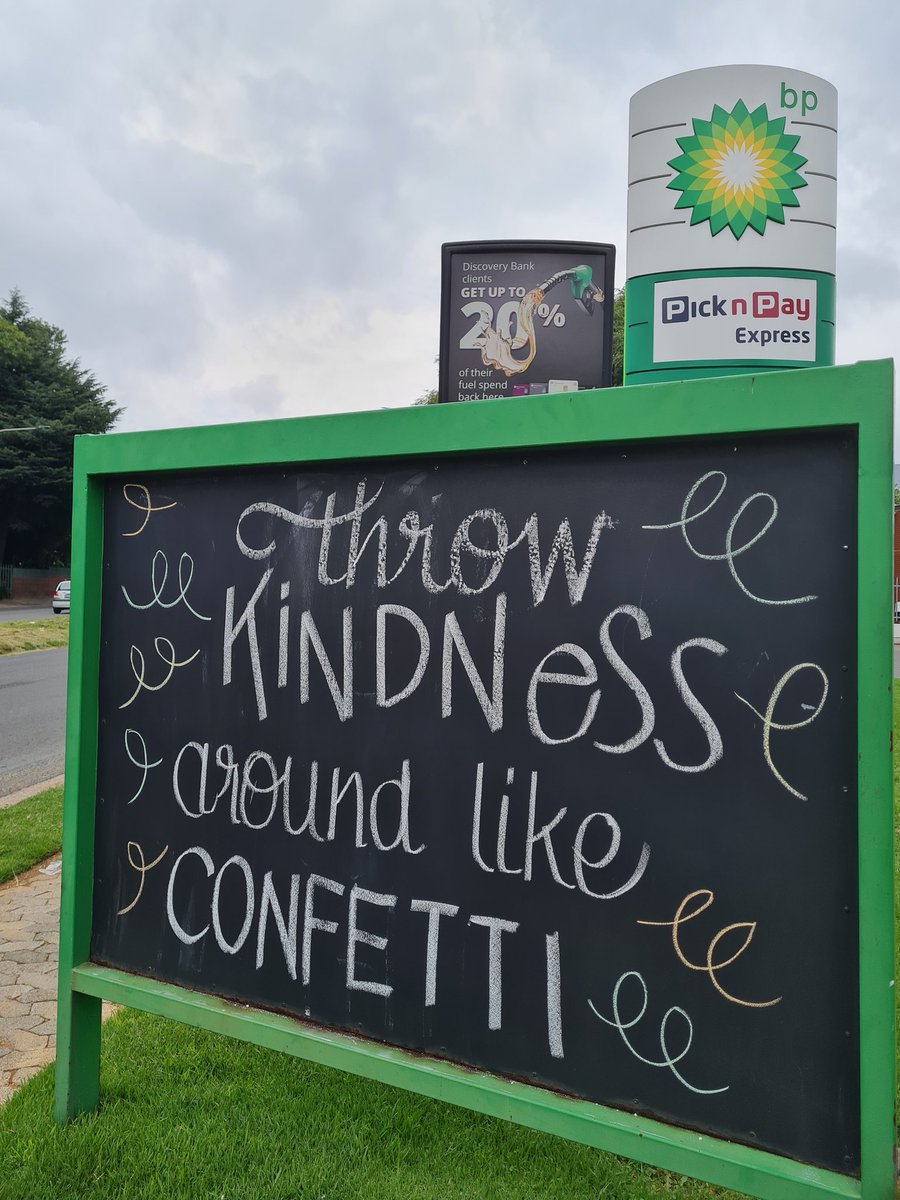 bp
Pick n Pay
Express
Discovery Bank
clients
GET UP TO
20%
of their
fuel spend
back here
throw
KiNDNeSS
around like
CONFETTI